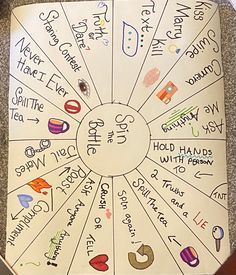 Spin
The
Bottle
Truth
or
"Dare"
Text...
Kiss
Marry
Kill
Swipe
Camera
Ask
Me
Anything
HOLD HANDS
WITH PERSON
TNT
2 Truths and a
LIE
Spill The Tea
Spin again
CRUSH
OR
TELL
Ask
Anyone
Anything!
Roast
Compliment
Jail Mates
Spill The
Tea
Never
Have I Ever
Staring Contest